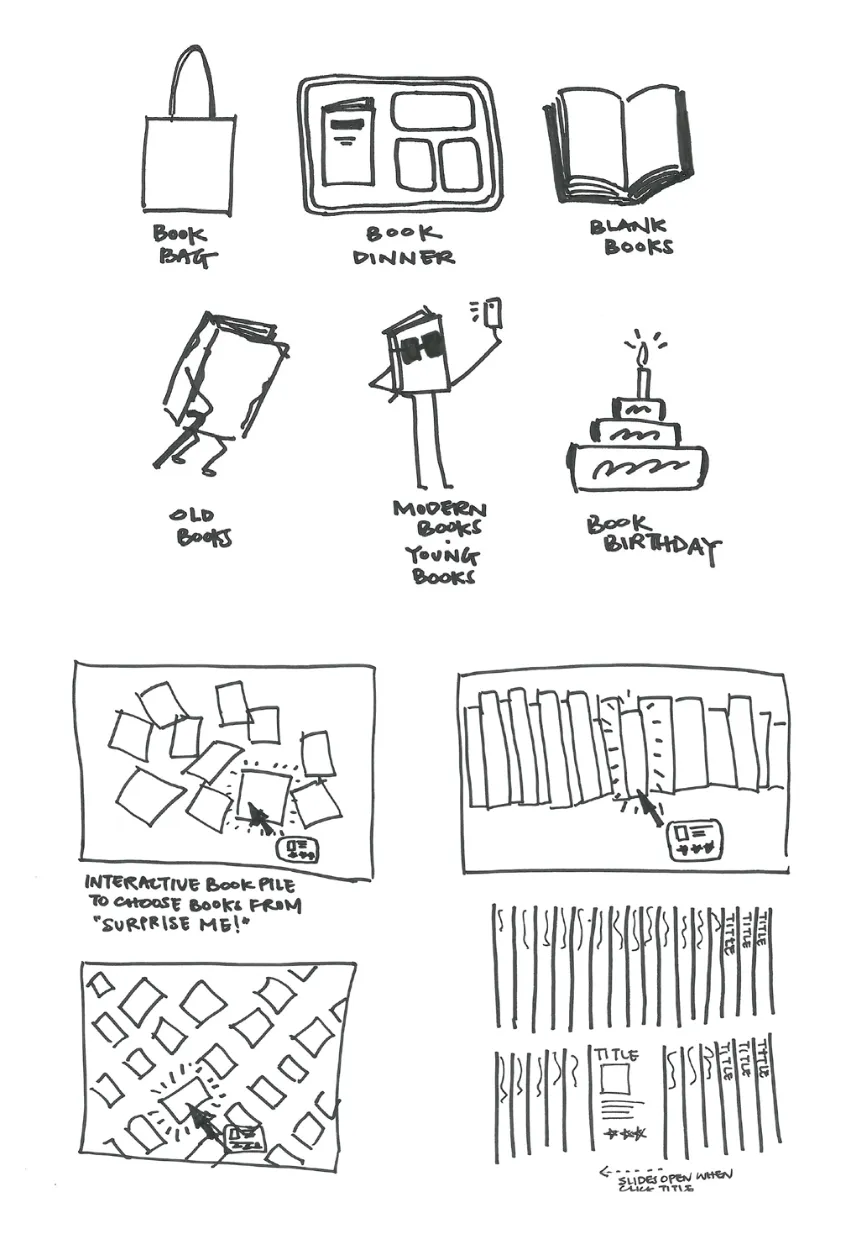 BOOK
BAG
BOOK
DINNER
BLANK
BOOKS
OLD
BOOKS
MODERN
BOOKS
·
YOUNG
BOOKS
BOOK
BIRTHDAY
INTERACTIVE BOOK PILE
TO CHOOSE BOOKS FROM
"SURPRISE ME!"
TITLE
TITLE
TITLE
TITLE
TITLE
TITLE
TITLE
SLIDES OPEN WHEN
CLICK TITLE